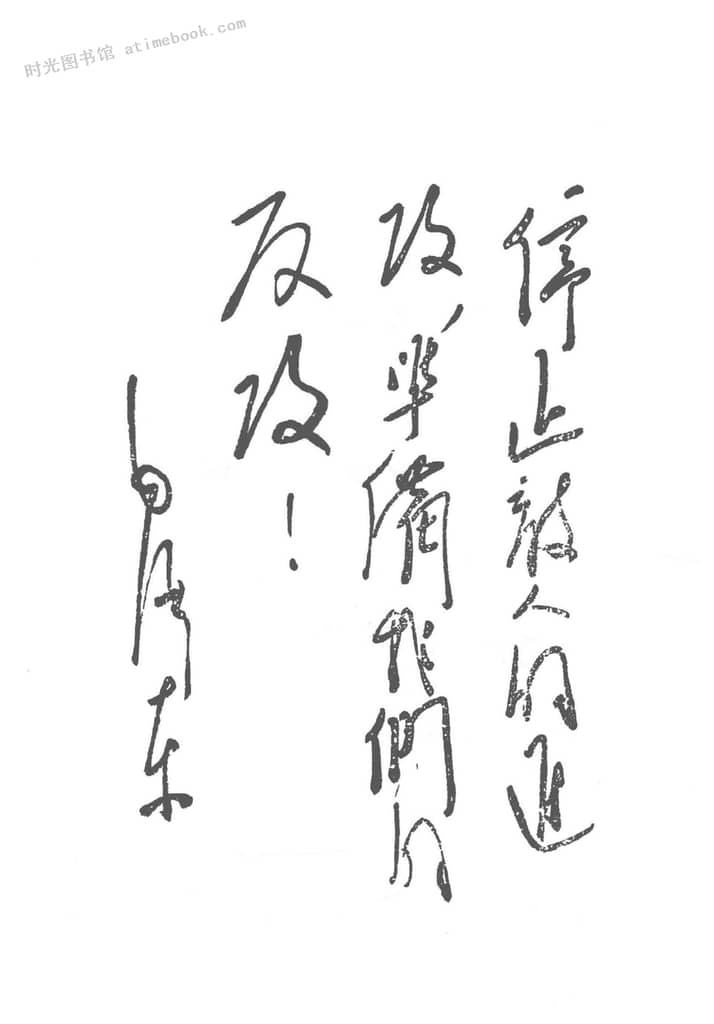 时光图书馆 atimebook.com
停止敵人的進
攻，準備我們的
反攻！
毛泽东